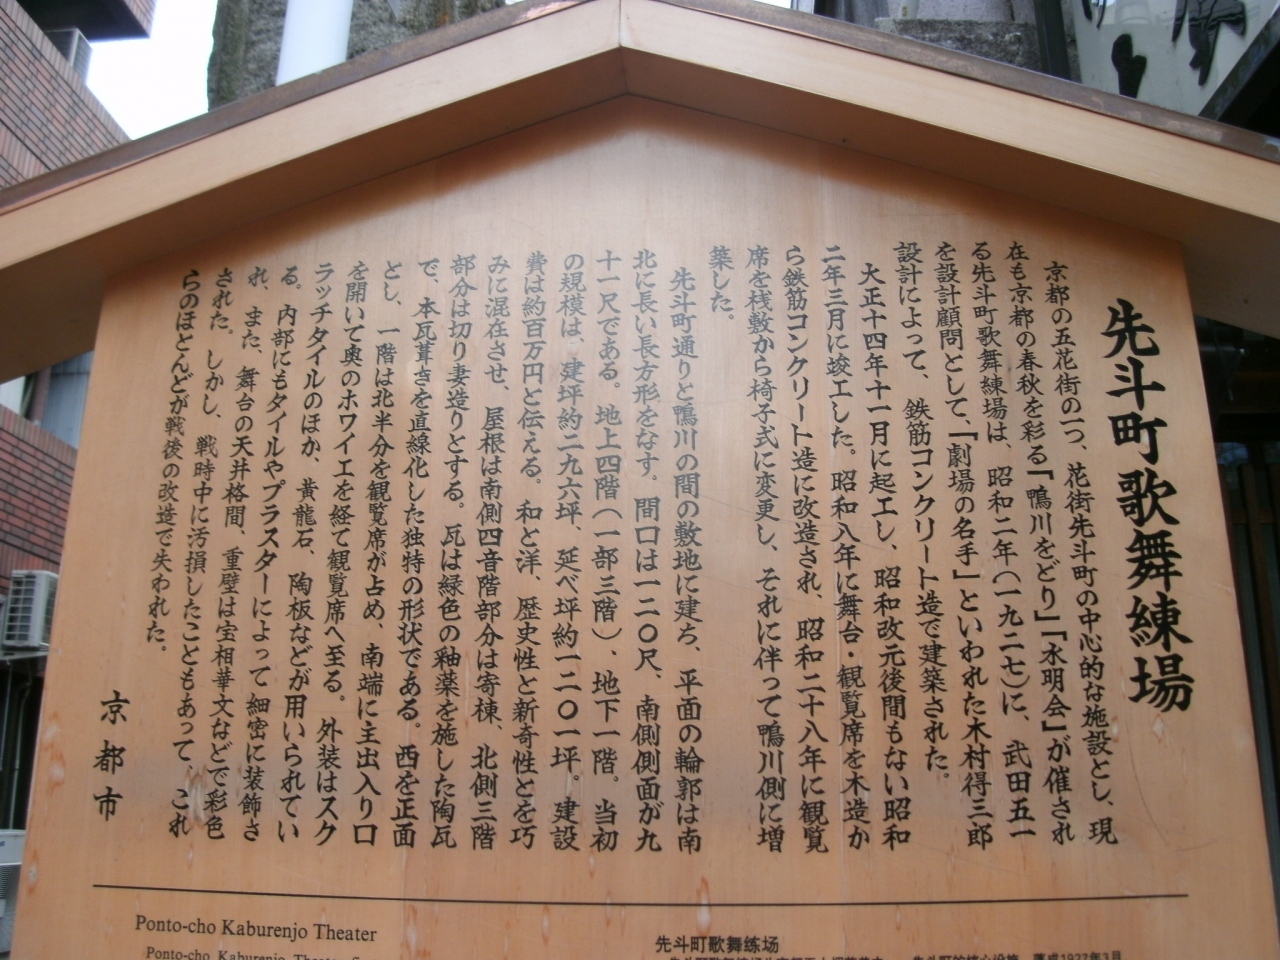 先斗町歌舞練場
京都の五花街の一つ、花街先斗町の中心的な施設とし、現
在も京都の春秋を彩る「鴨川をどり」「水明会」が催され
る先斗町歌舞練場は、昭和二年（一九二七）に、武田五一
を設計顧問として、「劇場の名手」といわれた木村得三郎
設計によって、鉄筋コンクリート造で建築された。
大正十四年十一月に起工し、昭和改元後間もない昭和
二年三月に竣工した。昭和八年に舞台・観覧席を木造か
ら鉄筋コンクリート造に改造され、昭和二十八年に観覧
席を桟敷から椅子式に変更し、それに伴って鴨川側に増
築した。
先斗町通りと鴨川の間の敷地に建ち、平面の輪郭は南
北に長い長方形をなす。間口は一二〇尺、南側側面が九
十一尺である。地上四階（一部三階）、地下一階。当初
の規模は、建坪約二九六坪、延べ坪約一二〇一坪。建設
費は約百万円と伝える。和と洋、歴史性と新奇性とを巧
みに混在させ、屋根は南側四音階部分は寄棟、北側三階
部分は切り妻造りとする。瓦は緑色の釉薬を施した陶瓦
で、本瓦葺きを直線化した独特の形状である。西を正面
とし、一階は北半分を観覧席が占め、南端に主出入り口
を開いて奥のホワイエを経て観覧席へ至る。外装はスク
ラッチタイルのほか、黄龍石、陶板などが用いられてい
る。内部にもタイルやプラスターによって細密に装飾さ
れ、また、舞台の天井格間、重壁は宝相華文などで彩色
された。しかし、戦時中に汚損したこともあって、これ
らのほとんどが戦後の改造で失われた。
京都市
Ponto-cho Kaburenjo Theater
先斗町歌舞练场